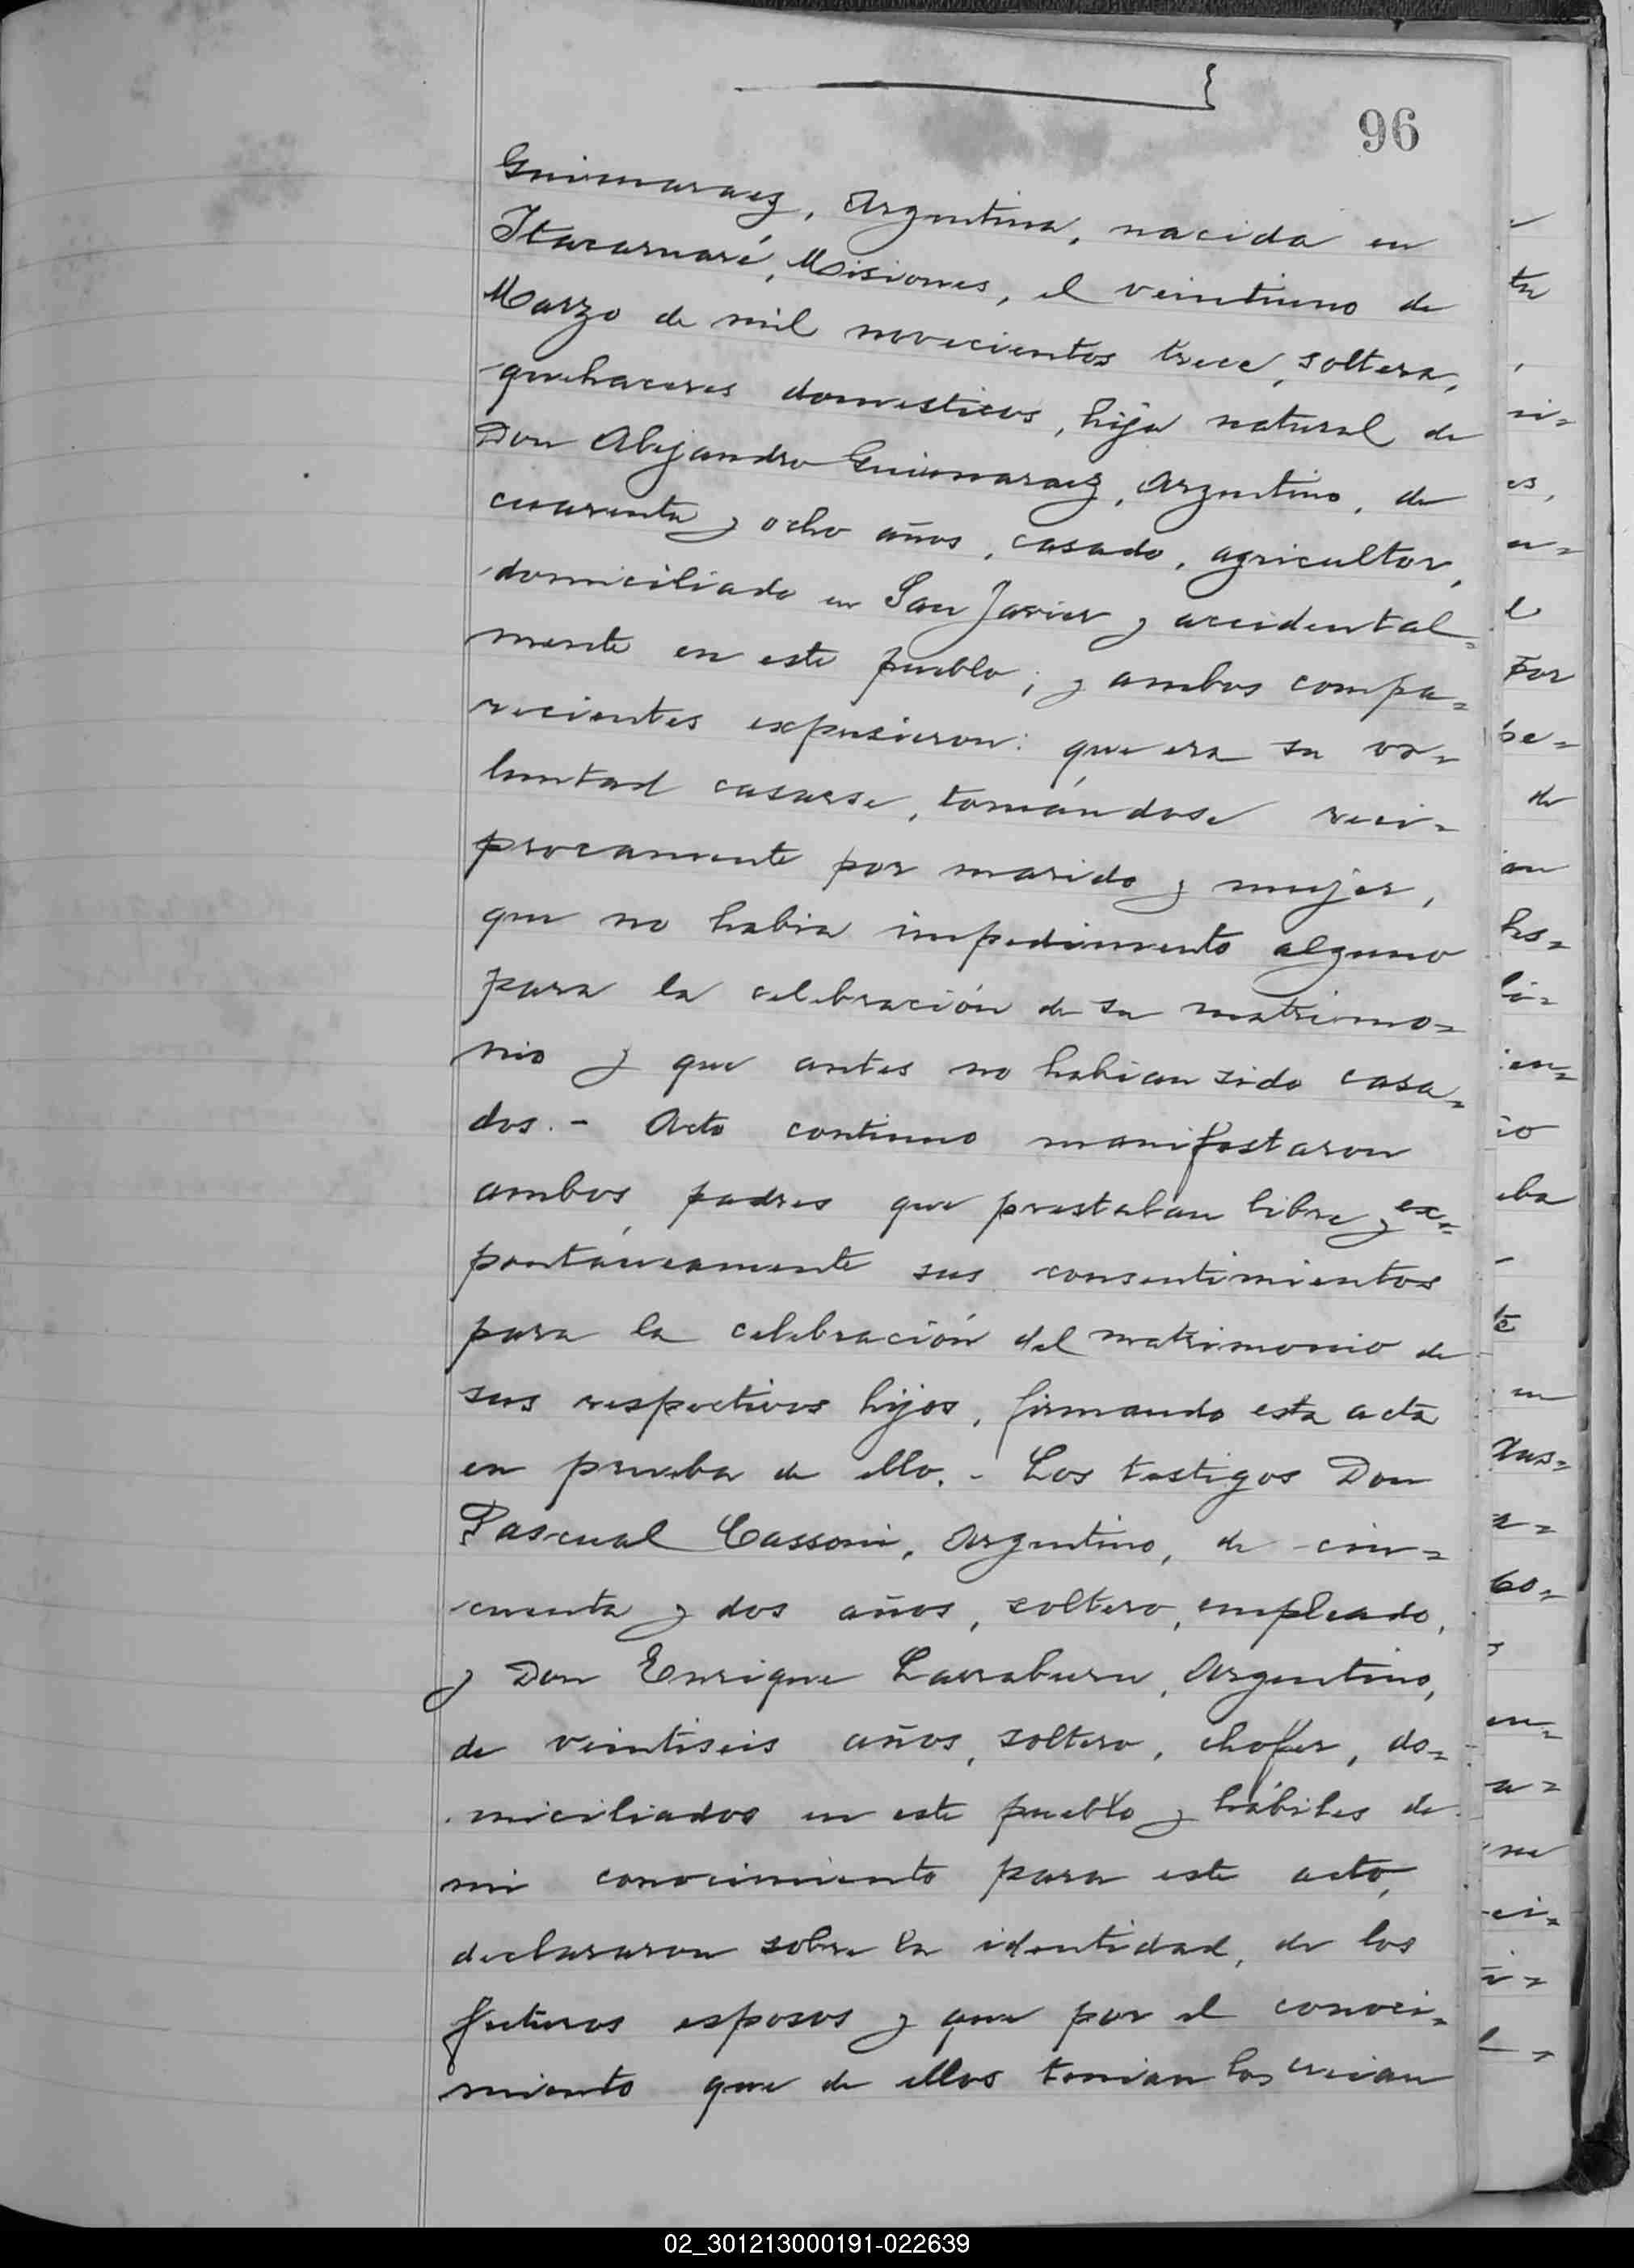 96
Guimaraez, Argentina, nacida en
Itacaruaré, Misiones, el veintiuno de
Marzo de mil novecientos trece, soltera,
quehaceres domesticos, hija natural de
Don Alejandro Guimaraez, Argentino, de
cuarenta y ocho años, casado, agricultor,
domiciliado en San Javier y accidental=
mente en este pueblo; y ambos compa=
recientes expusieron: que era su vo=
luntad casarse, tomándose reci=
procamente por marido y mujer,
que no habia impedimento alguno
para la celebración de su matrimo=
nio y que antes no habian sido casa=
dos.- Acto continuo manifestaron
ambos padres que prestaban libre y ex=
pontáneamente sus consentimientos
para la celebración del matrimonio de
sus respectivos hijos, firmando esta acta
en prueba de ello.- Los testigos Don
Pascual Cassoni, Argentino, de cin=
cuenta y dos años, soltero, empleado,
y Don Enrique Larraburu, Argentino,
de veintiseis años, soltero, chofer, do=
miciliados en este pueblo y hábiles de
mi conocimiento para este acto,
declararon sobre la identidad, de los
futuros esposos y que por el conoci=
miento que de ellos tenian los creian
02_301213000191-022639